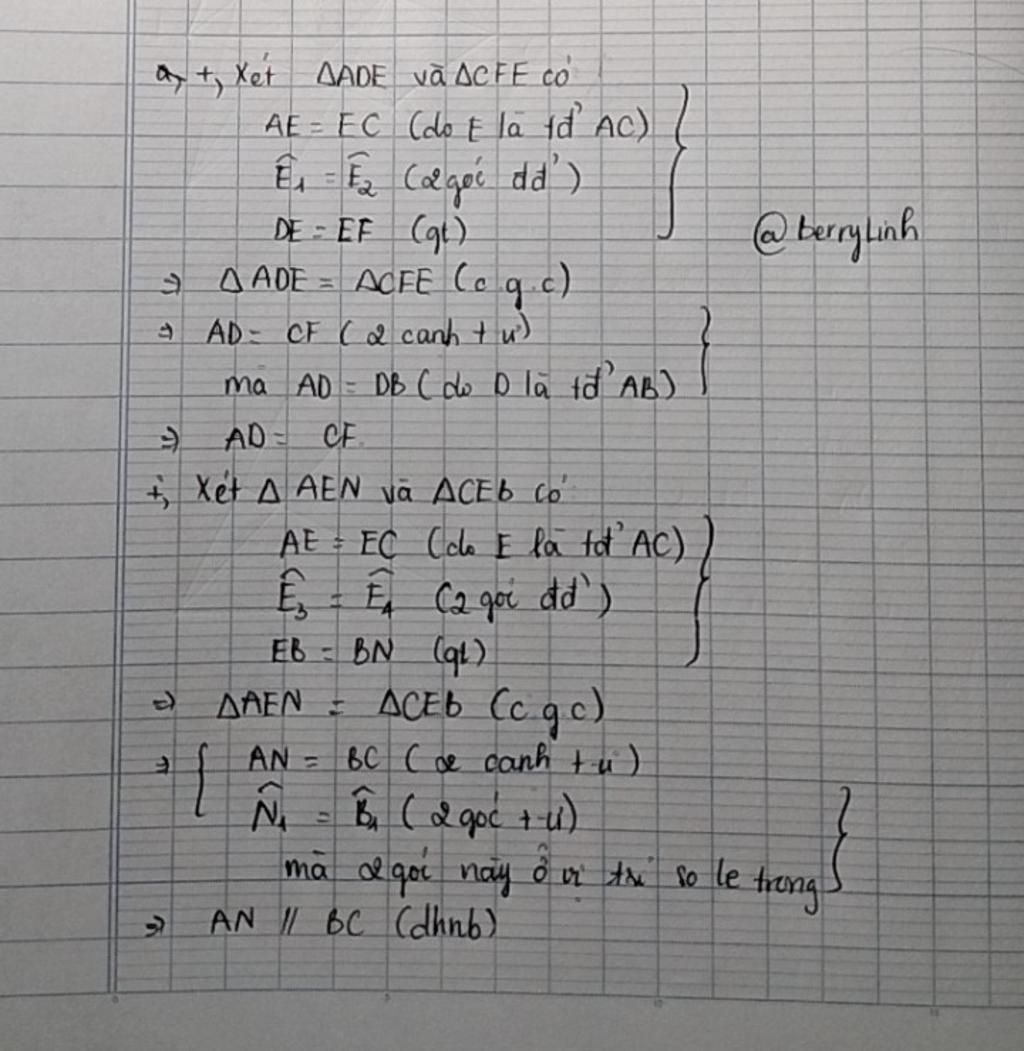 a, +, Xét ΔADE và ΔCFE có
AE = EC (do E là tđ' AC)
Ê₁ = Ê₂ (2 góc đđ')
DE = EF (gt)
@berryLinh
⇒ ΔADE = ΔCFE (c.g.c)
⇒ AD = CF (2 canh t.ư)
mà AD = DB (do D là tđ' AB)
⇒ AD = CF.
+, Xét Δ AEN và ΔCEB có
AE = EC (do E là tđ' AC)
Ê₃ = Ê₄ (2 góc đđ')
EB = BN (gt)
⇒ ΔAEN = ΔCEB (c g c)
⇒ { AN = BC (2 canh t.ư)
N̂₁ = B̂₁ (2 góc t.ư)
mà 2 góc này ở vị trí so le trong
⇒ AN // BC (dhnb)